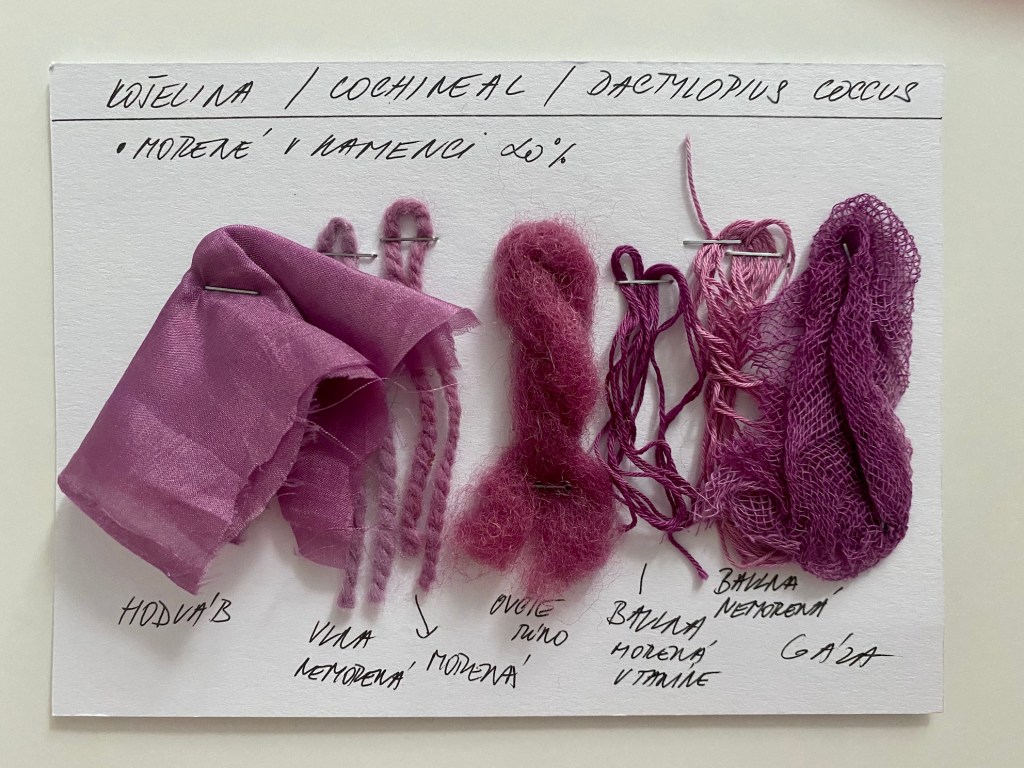 KOŠELINA / COCHINEAL / DACTYLOPIUS COCCUS
• MORENÉ V KAMENCI 20%
HODVÁB
VLNA
NEMORENÁ
MORENÁ
OVČIE
RÚNO
BAVLNA
MORENÁ
V TANÍNE
BAVLNA
NEMORENÁ
GÁZA